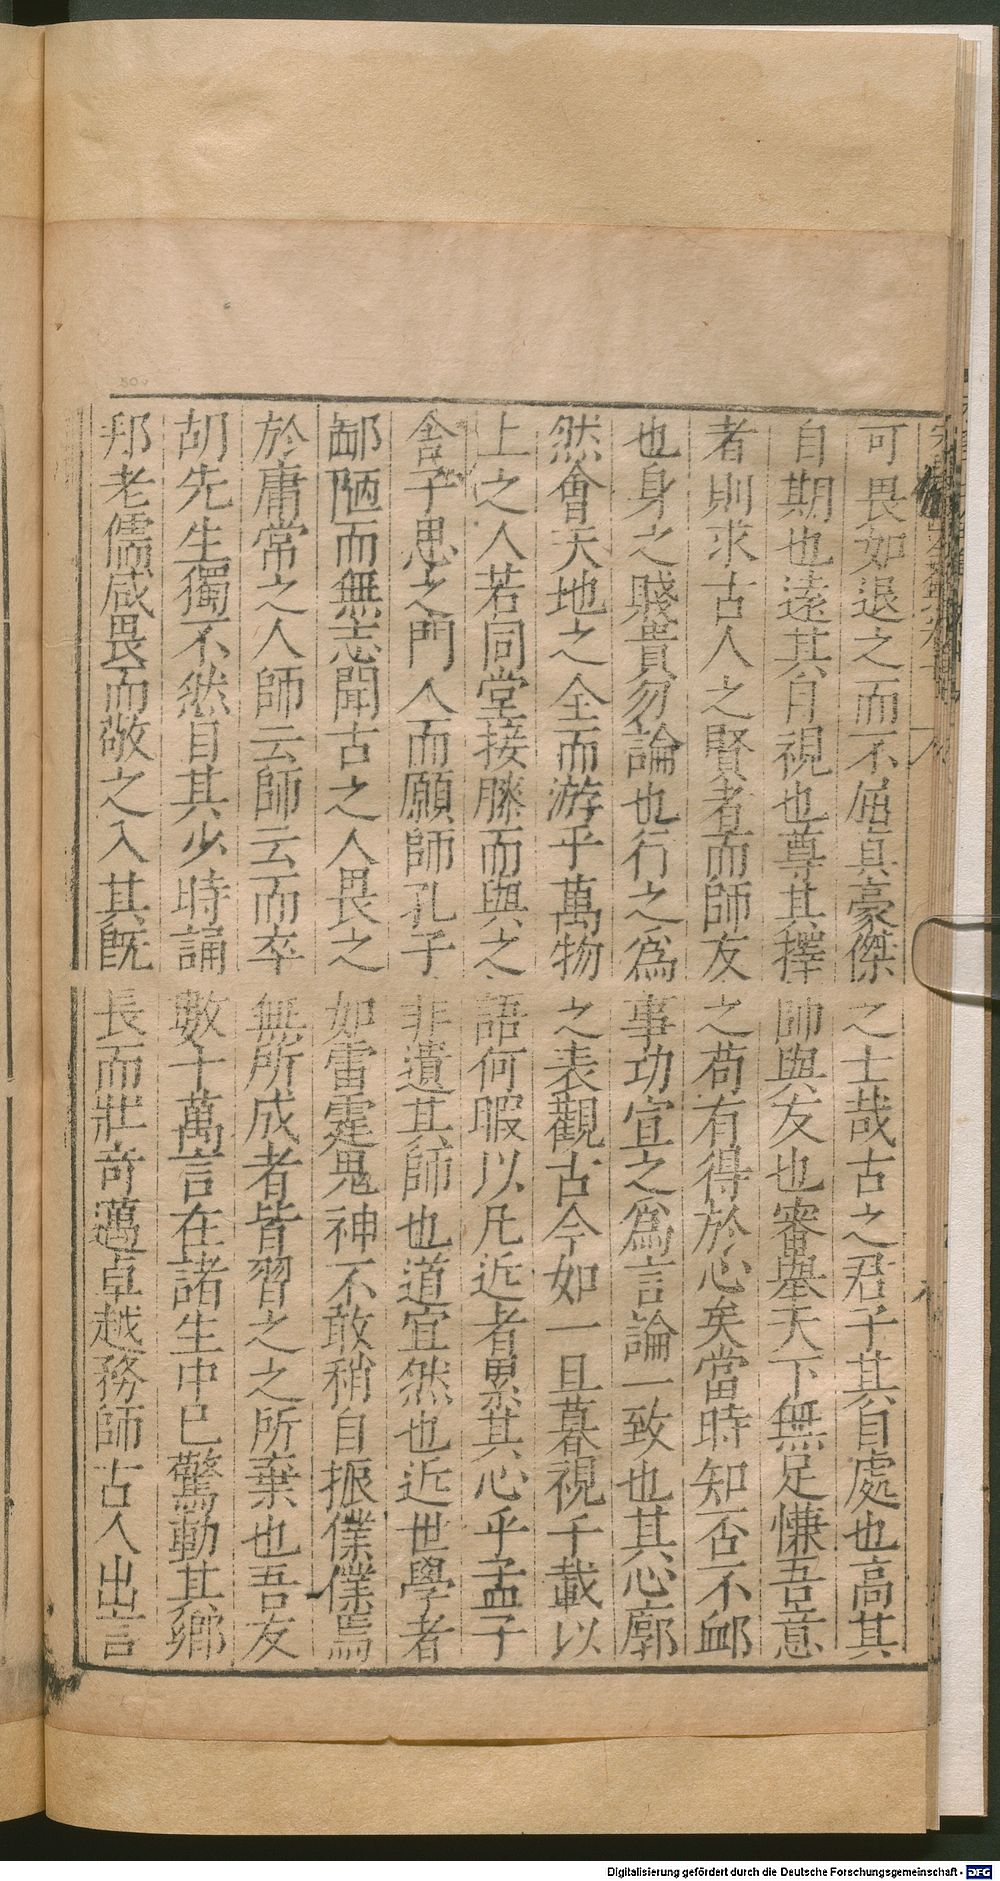 可畏如退之而不屈真豪傑之士哉古之君子其自處也高其
自期也遠其自視也尊其擇師與友也審舉天下無足慊吾意
者則求古人之賢者而師友之苟有得於心矣當時知否不卹
也身之賤貴勿論也行之為事功宣之為言論一致也其心廓
然會天地之全而游乎萬物之表觀古今如一旦暮視千載以
上之人若同堂接膝而與之語何暇以凡近者累其心乎孟子
舍子思之門人而願師孔子非遺其師也道宜然也近世學者
鄙陋而無志聞古之人畏之如雷霆鬼神不敢稍自振僕僕焉
於庸常之人師云師云而卒無所成者皆習之之所棄也吾友
胡先生獨不然自其少時誦數十萬言在諸生中已驚動其鄉
邦老儒咸畏而敬之入其既長而壯奇邁卓越務師古人出言
Digitalisierung gefördert durch die Deutsche Forschungsgemeinschaft - DFG